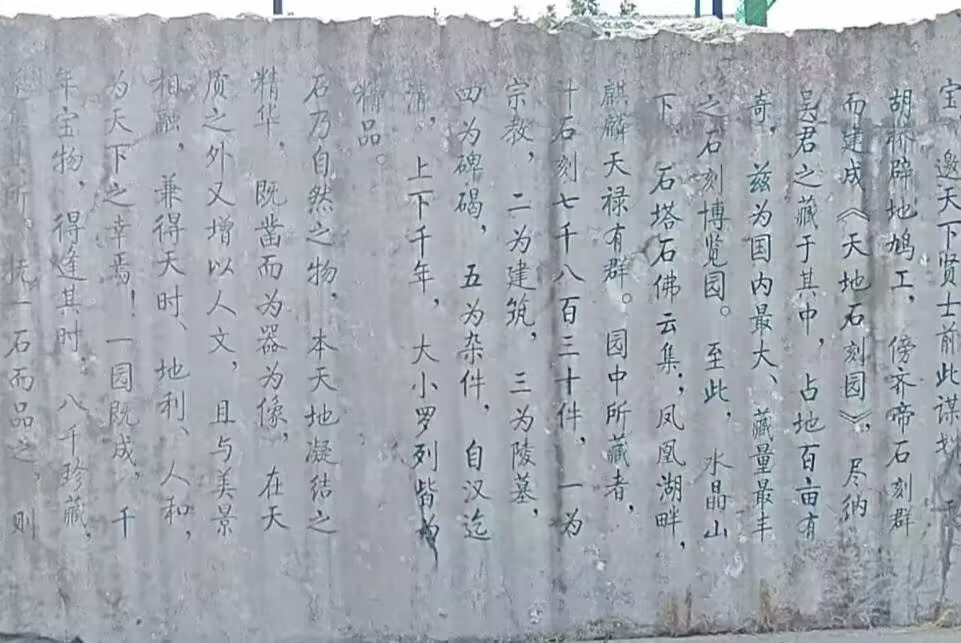 宝，邀天下贤士前此谋划，于
胡桥辟地鸠工，傍齐帝石刻群
而建成《天地石刻园》，尽纳
吴君之藏于其中，占地百亩有
奇，兹为国内最大、藏量最丰
之石刻博览园。至此，水晶山
下，石塔石佛云集；凤凰湖畔，
麒麟天禄有群。园中所藏者，
计石刻七千八百三十件，一为
宗教，二为建筑，三为陵墓，
四为碑碣，五为杂件，自汉迄
清，上下千年，大小罗列皆为
精品。
石乃自然之物，本天地凝结之
精华，既凿而为器为像，在天
质之外又增以人文，且与美景
相融，兼得天时、地利、人和，
为天下之幸焉！一园既成，千
年宝物，得逢其时，八千珍藏，
所，抚一石而品之，则